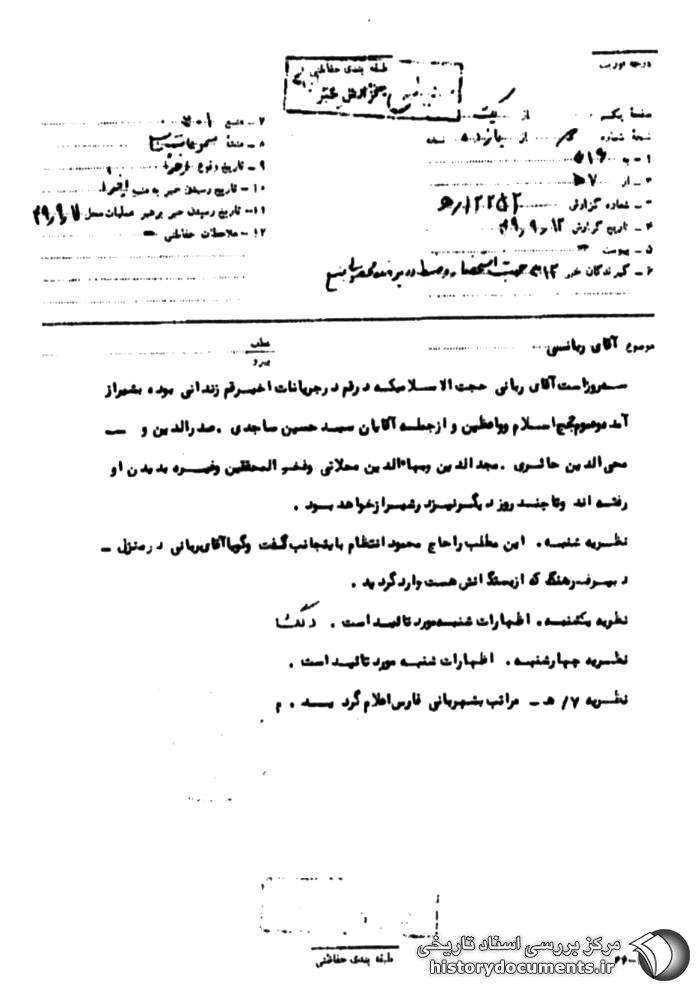 درجه فوریت
طبقه بندی حفاظتی
گزارش خبر
صفحهٔ یک از یک
نسخهٔ شماره از یازده نسخه
۱ـ به ۵۱۶
۲ـ از ۷ه
۳ـ شماره گزارش ۱۲۲۵۲/ه
۴ـ تاریخ گزارش ۴۹٫۹٫۱۲
۵ـ پیوست
۶ـ گیرندگان خبر ۳۱۲ جهت استحضار و ضبط در پرونده
۷ـ منبع ۷۰۱
۸ـ منشأ مسموعات
۹ـ تاریخ وقوع اخیرا
۱۰ـ تاریخ رسیدن خبر به منبع اخیرا
۱۱ـ تاریخ رسیدن خبر برهبر عملیات محل ۴۹٫۹٫۷
۱۲ـ ملاحظات حفاظتی ـ
موضوع آقای ربانسی
عطف
پیرو
سه روز است آقای ربانی حجت الاسلامیکه در قم در جریانات اخیر قم زندانی بوده بشیراز
آمده و عموم حجج اسلام و واعظین و از جمله آقایان سید حسین ساجدی . صدرالدین و ــ
محی الدین حائری . مجدالدین و بهاءالدین محلاتی و فخر المحققین و غیره بدیدن او
رفته اند و تا چند روز دیگر نیز در شیراز خواهد بود .
نظریه شنبه . این مطلب را حاج محمود انتظام باینجانب گفت و گویا آقای ربانی در منزل ــ
دبیر فرهنگ که از بستگانش هست وارد گردید .
نظریه یکشنبه . اظهارات شنبه مورد تائید است . دلگشا
نظریه چهارشنبه . اظهارات شنبه مورد تائید است .
نظریه ۷/ هـ ـ مراتب بشهربانی فارس اعلام گردید . م
طبقه بندی حفاظتی
مرکز بررسی اسناد تاریخی
historydocuments.ir